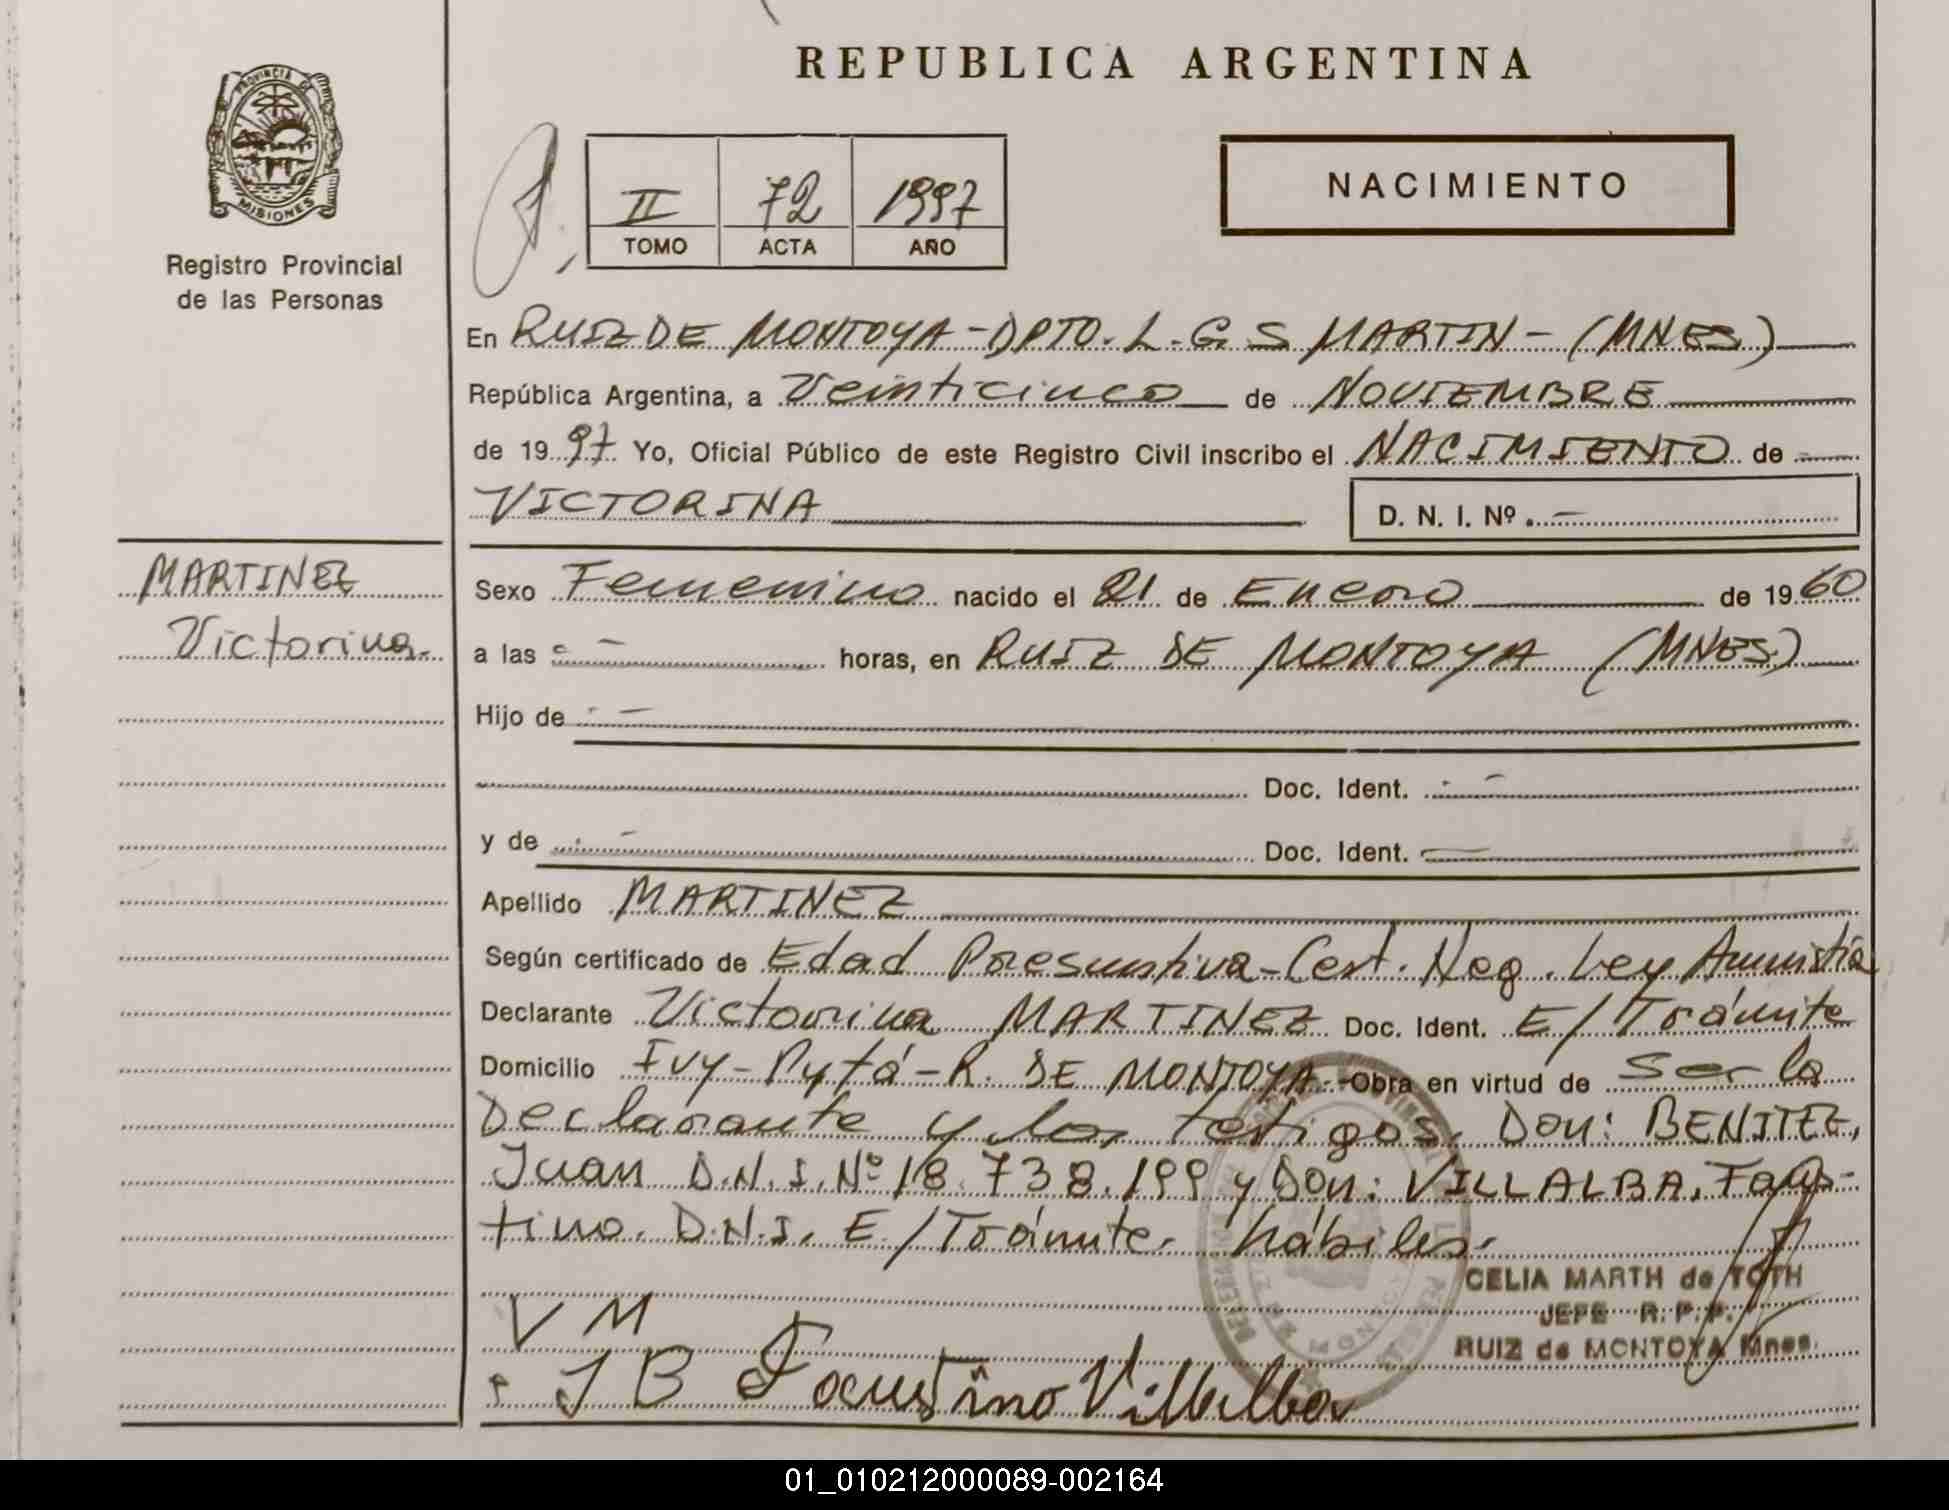 REPUBLICA ARGENTINA
PROVINCIA DE
MISIONES
Registro Provincial
de las Personas
II 72 1997
TOMO ACTA AÑO
NACIMIENTO
En RUIZ DE MONTOYA - DPTO. L. G. S MARTIN - (MNES)
República Argentina, a Veinticinco de NOVIEMBRE
de 1997 Yo, Oficial Público de este Registro Civil inscribo el NACIMIENTO de
VICTORINA
D. N. I. Nº . -
MARTINEZ
Victorina.
Sexo Femenino nacido el 21 de Enero de 1960
a las - horas, en RUIZ DE MONTOYA (MNES)
Hijo de -
Doc. Ident. -
y de - Doc. Ident. -
Apellido MARTINEZ
Según certificado de Edad Presuntiva - Cert. Neg. Ley Amnistia
Declarante Victorina MARTINEZ Doc. Ident. E/Trámite
Domicilio Ivy-Pytá - R. DE MONTOYA - Obra en virtud de ser la
Declarante y los testigos. Don: BENITEZ,
Juan D.N.I. Nº 18.738.199 y Don: VILLALBA, Faus-
tino. D.N.I. E/Trámite. hábiles.
CELIA MARTH de TOTH
JEFE R. P. P.
RUIZ de MONTOYA Mnes.
V M
J B Faustino Villalba
01_010212000089-002164